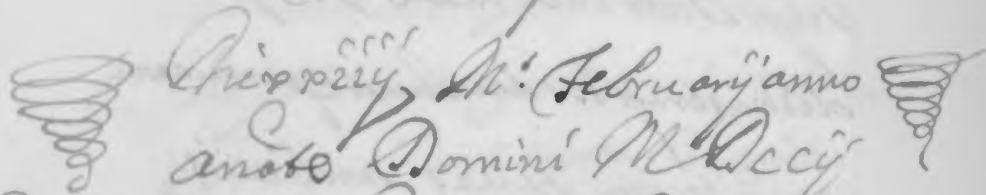 Die xxiij Ms: Februarij anno
a nato Domini MDccij